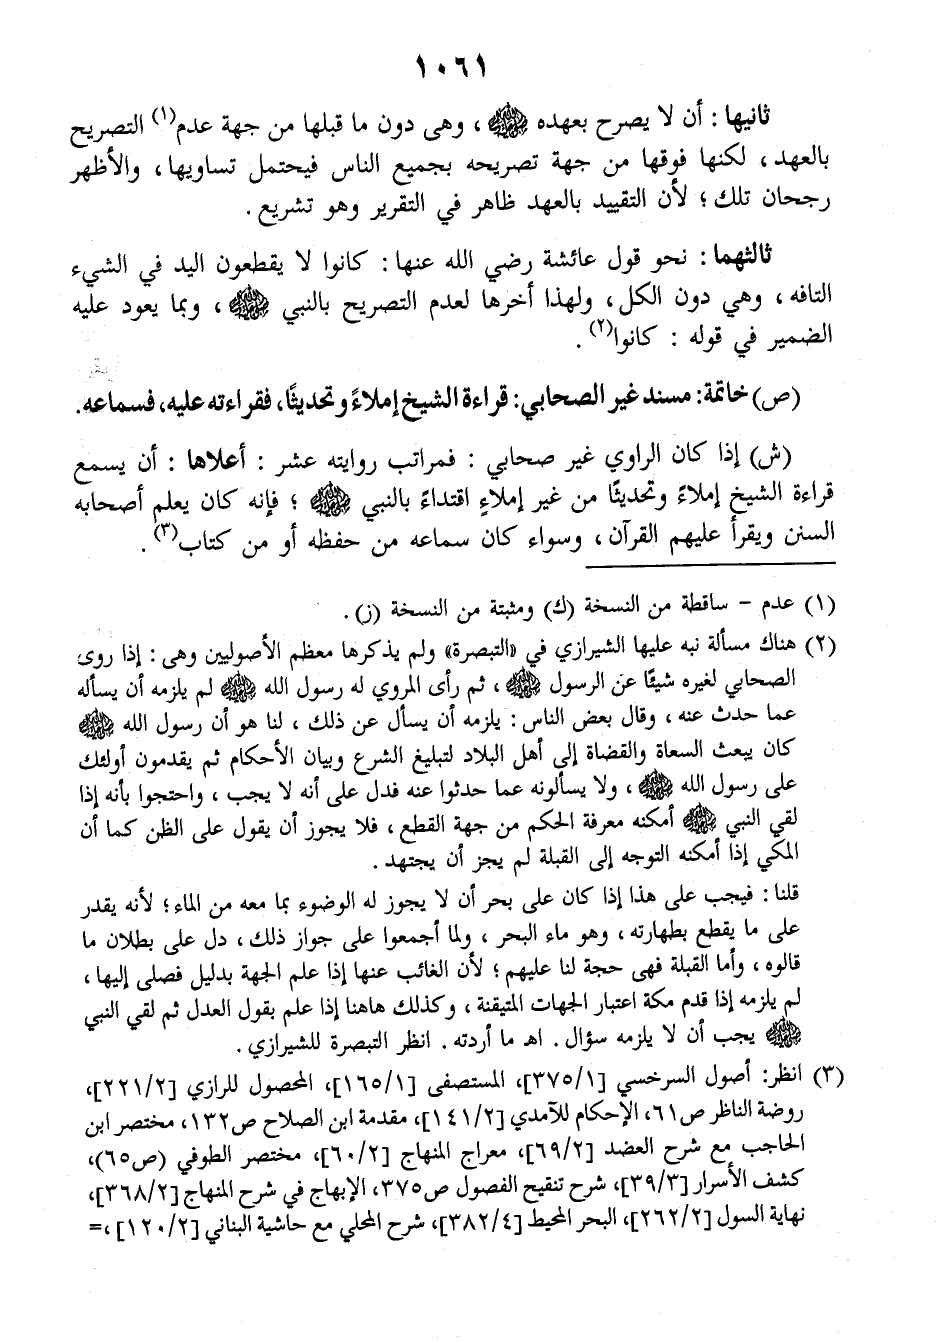 ١٠٦١
ثانيها : أن لا يصرح بعهده ﷺ ، وهى دون ما قبلها من جهة عدم(١) التصريح
بالعهد، لكنها فوقها من جهة تصريحه بجميع الناس فيحتمل تساويها، والأظهر
رجحان تلك ؛ لأن التقييد بالعهد ظاهر في التقرير وهو تشريع .
ثالثهما : نحو قول عائشة رضي الله عنها : كانوا لا يقطعون اليد في الشيء
التافه، وهي دون الكل، ولهذا أخرها لعدم التصريح بالنبي ﷺ ، وبما يعود عليه
الضمير في قوله : كانوا(٢) .
(ص) خاتمة: مسند غير الصحابي: قراءة الشيخ إملاءً وتحديثًا، فقراءته عليه، فسماعه.
(ش) إذا كان الراوي غير صحابي : فمراتب روايته عشر : أعلاها : أن يسمع
قراءة الشيخ إملاءً وتحديثًا من غير إملاءٍ اقتداءً بالنبي ﷺ ؛ فإنه كان يعلم أصحابه
السنن ويقرأ عليهم القرآن، وسواء كان سماعه من حفظه أو من كتاب(٣) .
(١) عدم - ساقطة من النسخة (ك) ومثبتة من النسخة (ز) .
(٢) هناك مسألة نبه عليها الشيرازي في «التبصرة» ولم يذكرها معظم الأصوليين وهى : إذا روى
الصحابي لغيره شيئًا عن الرسول ﷺ ، ثم رأى المروي له رسول الله ﷺ لم يلزمه أن يسأله
عما حدث عنه ، وقال بعض الناس : يلزمه أن يسأل عن ذلك ، لنا هو أن رسول الله ﷺ
كان يبعث السعاة والقضاة إلى أهل البلاد لتبليغ الشرع وبيان الأحكام ثم يقدمون أولئك
على رسول الله ﷺ ، ولا يسألونه عما حدثوا عنه فدل على أنه لا يجب ، واحتجوا بأنه إذا
لقي النبي ﷺ أمكنه معرفة الحكم من جهة القطع ، فلا يجوز أن يقول على الظن كما أن
المكي إذا أمكنه التوجه إلى القبلة لم يجز أن يجتهد .
قلنا : فيجب على هذا إذا كان على بحر أن لا يجوز له الوضوء بما معه من الماء ؛ لأنه يقدر
على ما يقطع بطهارته ، وهو ماء البحر ، ولما أجمعوا على جواز ذلك ، دل على بطلان ما
قالوه ، وأما القبلة فهى حجة لنا عليهم ؛ لأن الغائب عنها إذا علم الجهة بدليل فصلى إليها ،
لم يلزمه إذا قدم مكة اعتبار الجهات المتيقنة ، وكذلك هاهنا إذا علم بقول العدل ثم لقي النبي
ﷺ يجب أن لا يلزمه سؤال . اهـ ما أردته . انظر التبصرة للشيرازي .
(٣) انظر: أصول السرخسي [٣٧٥/١]، المستصفى [١٦٥/١]، المحصول للرازي [٢٢١/٢]،
روضة الناظر ص٦١، الإحكام للآمدي [١٤١/٢]، مقدمة ابن الصلاح ص١٣٢، مختصر ابن
الحاجب مع شرح العضد [٦٩/٢]، معراج المنهاج [٦٠/٢]، مختصر الطوفي (ص٦٥)،
كشف الأسرار [٣٩/٣]، شرح تنقيح الفصول ص٣٧٥، الإبهاج في شرح المنهاج [٣٦٨/٢]،
نهاية السول [٢٦٢/٢]، البحر المحيط [٣٨٢/٤]، شرح المحلي مع حاشية البناني [١٢٠/٢]،=